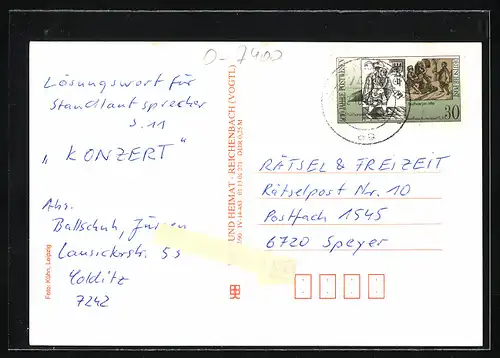 0-7400
Lösungswort für
Standlautsprecher
S. 11
"KONZERT"
Abs.
Ballschuh, Jürgen
Lausickerstr. 53
Colditz
7242
Foto: Kühn, Leipzig
UND HEIMAT · REICHENBACH (VOGTL)
30
RÄTSEL & FREIZEIT
Rätselpost Nr. 10
Postfach 1545
6720 Speyer